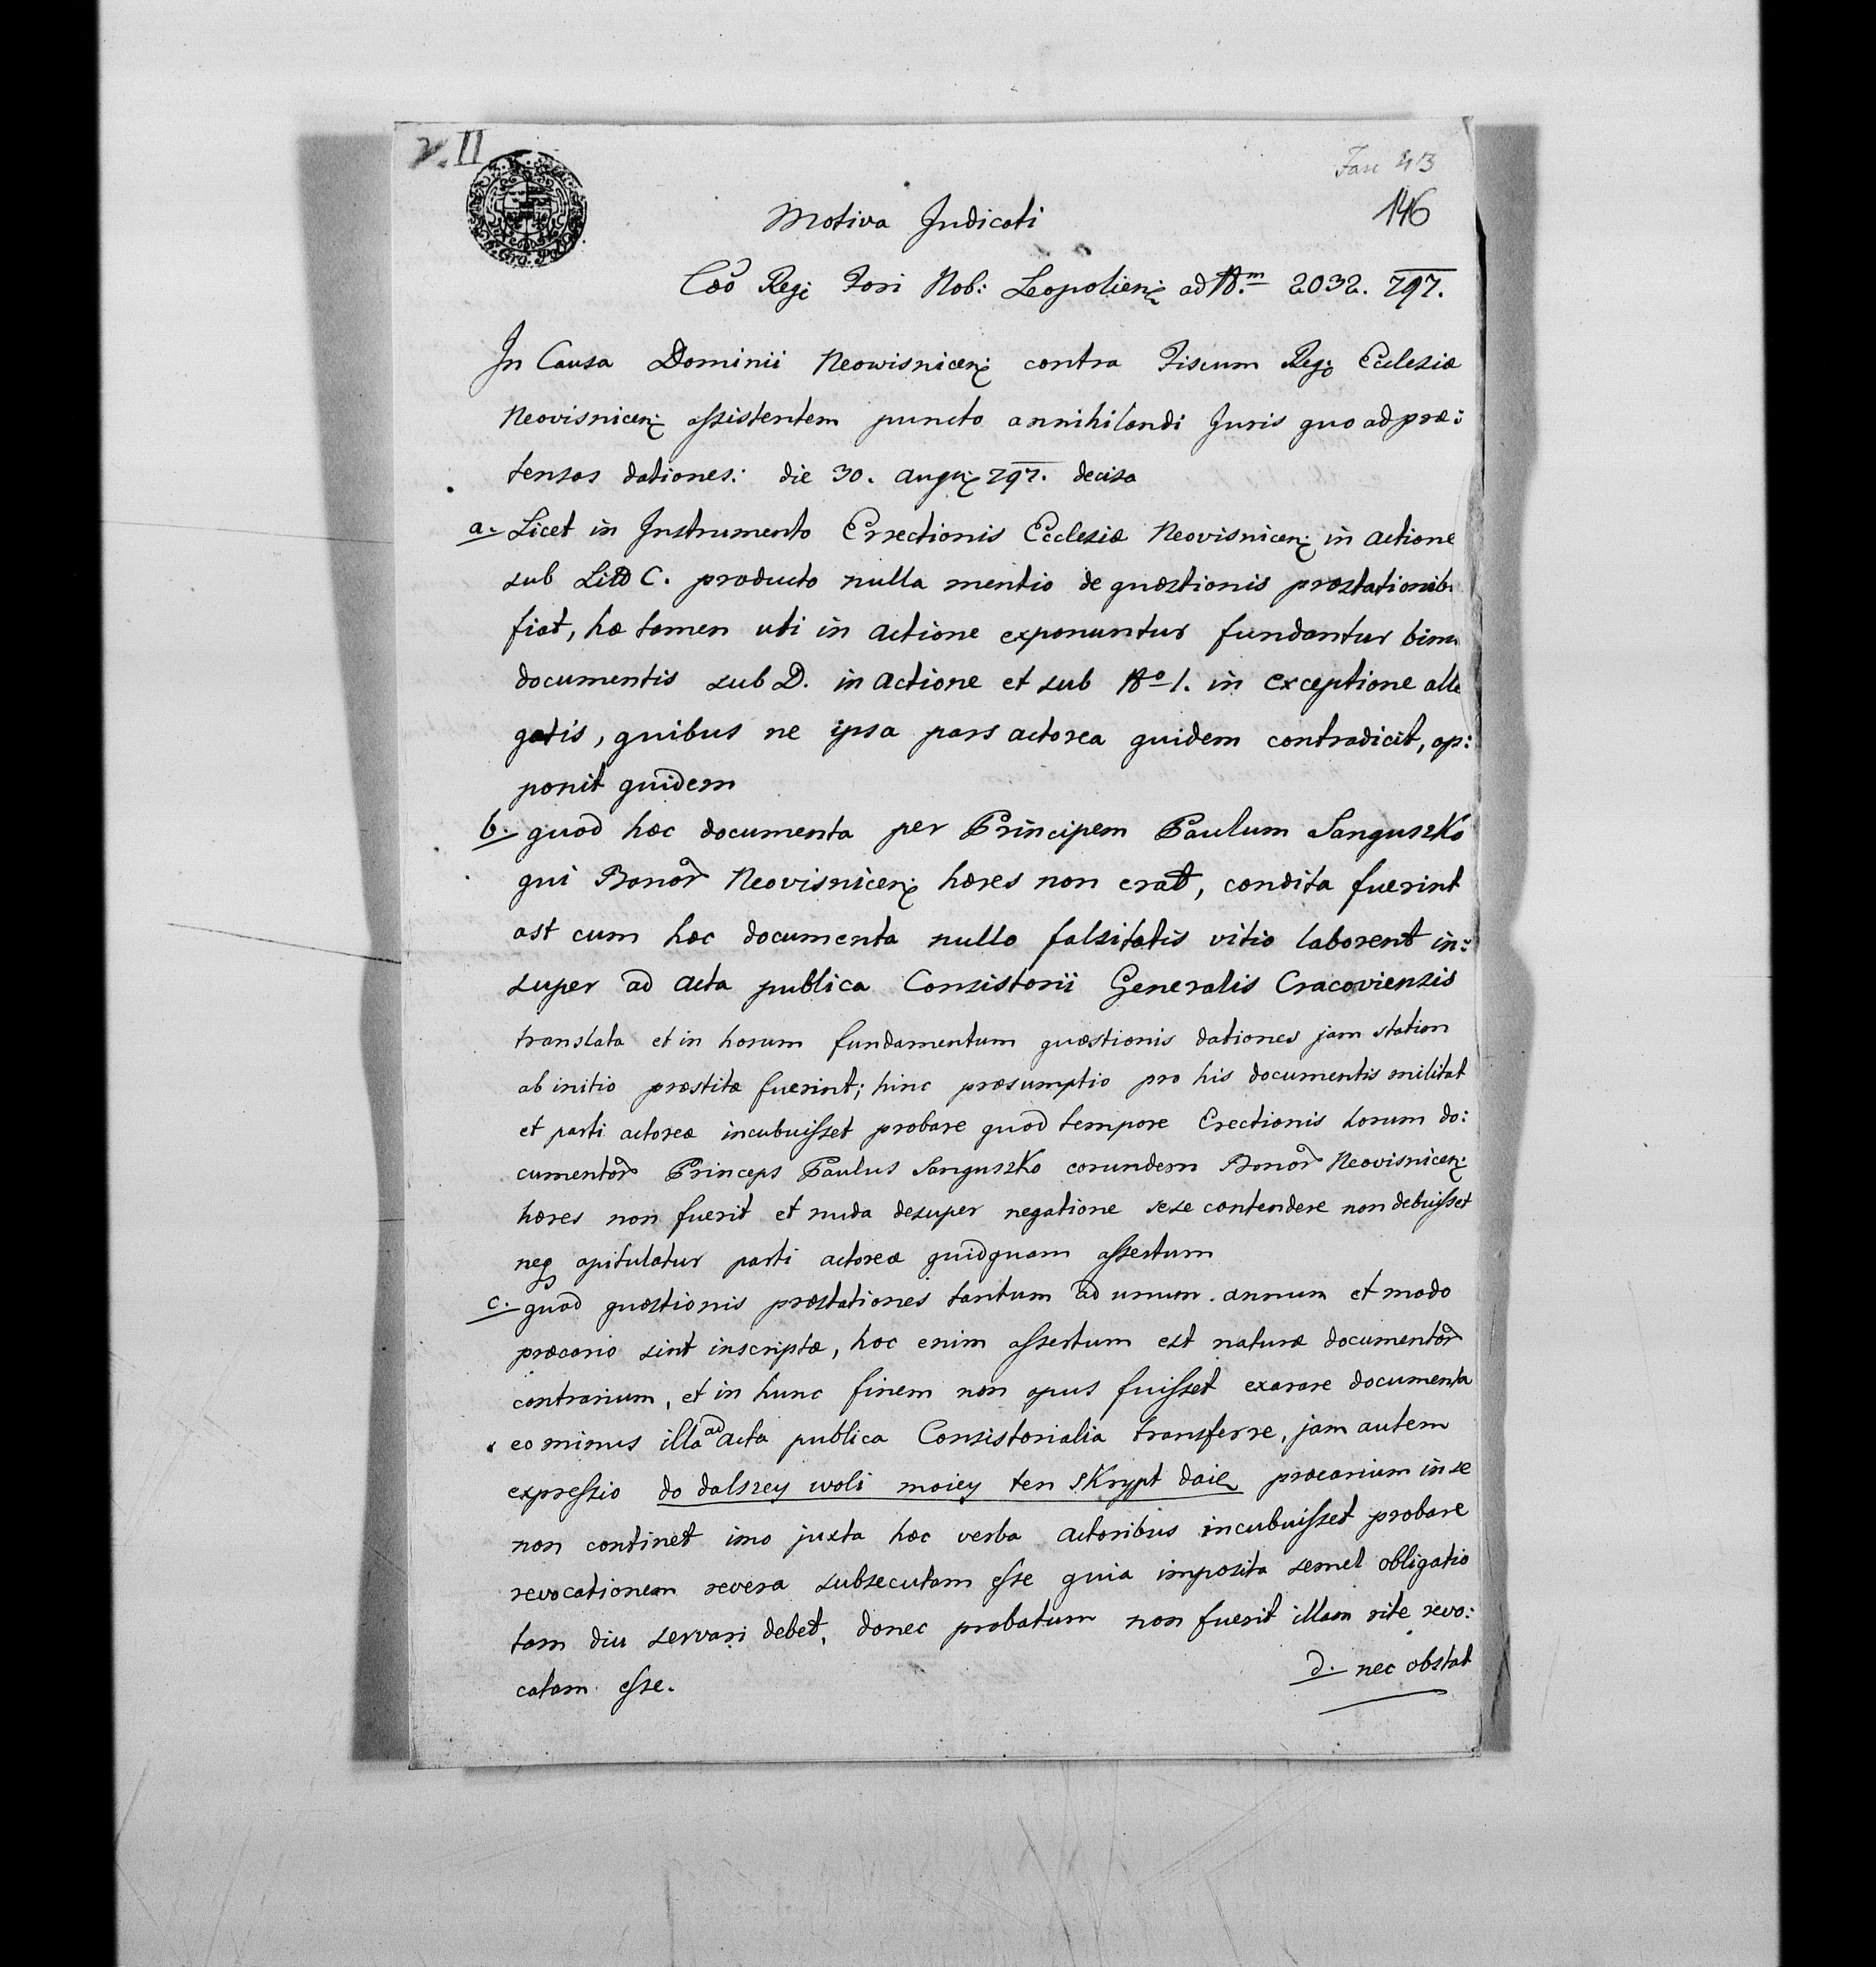 V. II
Fasc 43
146
Motiva Judicati
Cæo Regi Fori Nob: Leopolien: ad N.m 2032. 797.
In Causa Dominii Neowisnicen: contra Fiscum Reg: Ecclesiæ
Neovisnicen: assistentem puncto annihilandi Juris quo ad præ:
tensas dationes: die 30. Augu: 797. decisa
a. Licet in Instrumento Errectionis Ecclesiæ Neovisnicen: in actione
sub Litt C. producto nulla mentio de quæstionis præstationib
fiat, hæ tamen uti in actione exponuntur fundantur bin
documentis sub D. in actione et sub No 1. in exceptione alle
gatis, quibus ne ipsa pars actorea quidem contradicit, op:
ponit quidem
b. quod hæc documenta per Principem Paulum Sanguszko
qui Bonor Neovisnicen: hæres non erat, condita fuerint
ast cum hæc documenta nullo falsitatis vitio laborent in:
super ad acta publica Consistorii Generalis Cracoviensis
translata et in horum fundamentum quæstionis dationes jam statim
ab initio præstitæ fuerint; hinc præsumptio pro his documentis militat
et parti actoreæ incubuisset probare quod tempore Erectionis horum do:
cumentor Princeps Paulus Sanguszko eorundem Bonor Neovisnicen:
hæres non fuerit et nuda desuper negatione sese contendere non debuisset
neq opitulatur parti actoreæ quidquam assertum
c. quod quæstionis præstationes tantum ad unum annum et modo
præcario sint inscriptæ, hoc enim assertum est naturæ documentor
contrarium, et in hunc finem non opus fuisset exarare documenta
eo minus illa ad acta publica Consistorialia transferre, jam autem
expressio do dalszey woli moiey ten skrypt daię præcarium in se
non continet imo juxta hæc verba actoribus incubuisset probare
revocationem revera subsecutam esse quia imposita semel obligatio
tam diu servari debet, donec probatum non fuerit illam rite revo:
catam esse.
d. nec obstat